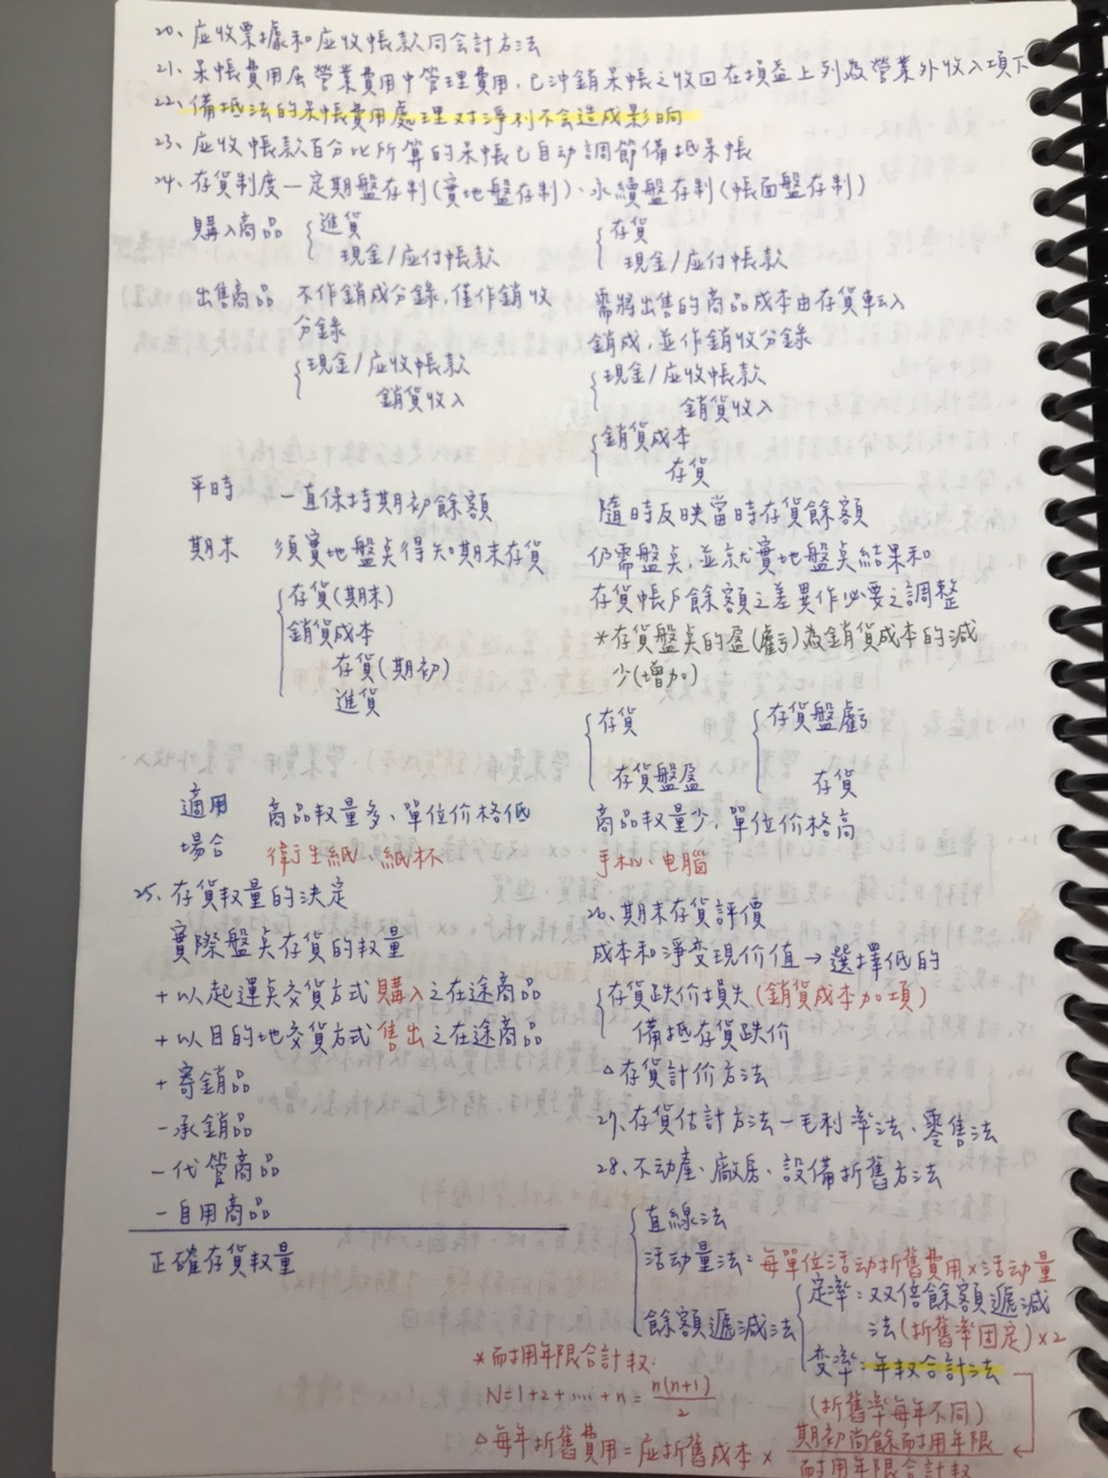 20、应收票據和应收帳款同会計方法
21、呆帳費用屬營業費用中管理費用，已沖銷呆帳之收回在損益上列為營業外收入項下
22、備抵法的呆帳費用處理对淨利不会造成影响
23、应收帳款百分比所算的呆帳已自动調節備抵呆帳
24、存貨制度－定期盤存制(實地盤存制)、永續盤存制(帳面盤存制)
購入商品 { 進貨
現金/应付帳款
{ 存貨
現金/应付帳款
出售商品 不作銷成分錄，僅作銷收
分錄
{ 現金/应收帳款
銷貨收入
需將出售的商品成本由存貨転入
銷成，並作銷收分錄
{ 現金/应收帳款
銷貨收入
{ 銷貨成本
存貨
平時 一直保持期初餘額
隨時反映當時存貨餘額
期末 須實地盤点得知期末存貨
{ 存貨(期末)
銷貨成本
存貨(期初)
進貨
仍需盤点，並就實地盤点結果和
存貨帳戶餘額之差異作必要之調整
*存貨盤点的盈(虧)為銷貨成本的減
少(增加)
{ 存貨
存貨盤盈
{ 存貨盤虧
存貨
適用 商品数量多、單位价格低
場合 衛生紙、紙杯
商品数量少、單位价格高
手机、电腦
25、存貨数量的決定
實際盤点存貨的数量
+以起運点交貨方式購入之在途商品
+以目的地交貨方式售出之在途商品
+寄銷品
-承銷品
-代管商品
-自用商品
正確存貨数量
26、期末存貨評價
成本和淨变現价值→選擇低的
{ 存貨跌价損失(銷貨成本加項)
備抵存貨跌价
△存貨計价方法
27、存貨估計方法－毛利率法、零售法
28、不动產、廠房、設備折舊方法
{ 直線法
活动量法：每單位活动折舊費用×活动量
餘額遞減法 { 定率：双倍餘額遞減
法(折舊率固定)×2
变率：年数合計法
(折舊率每年不同)
*耐用年限合計数：
N=1+2+……+n= n(n+1)/2
△每年折舊費用=应折舊成本× 期初尚餘耐用年限/耐用年限合計数